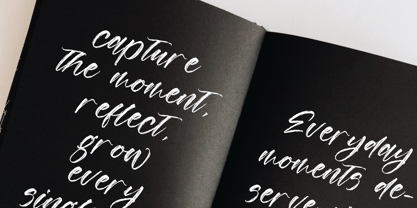 capture
the moment,
reflect,
grow
every
Everyday
moments de-